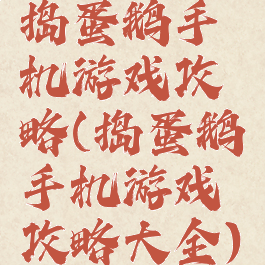 捣蛋鹅手
机游戏攻
略(捣蛋鹅
手机游戏
攻略大全)